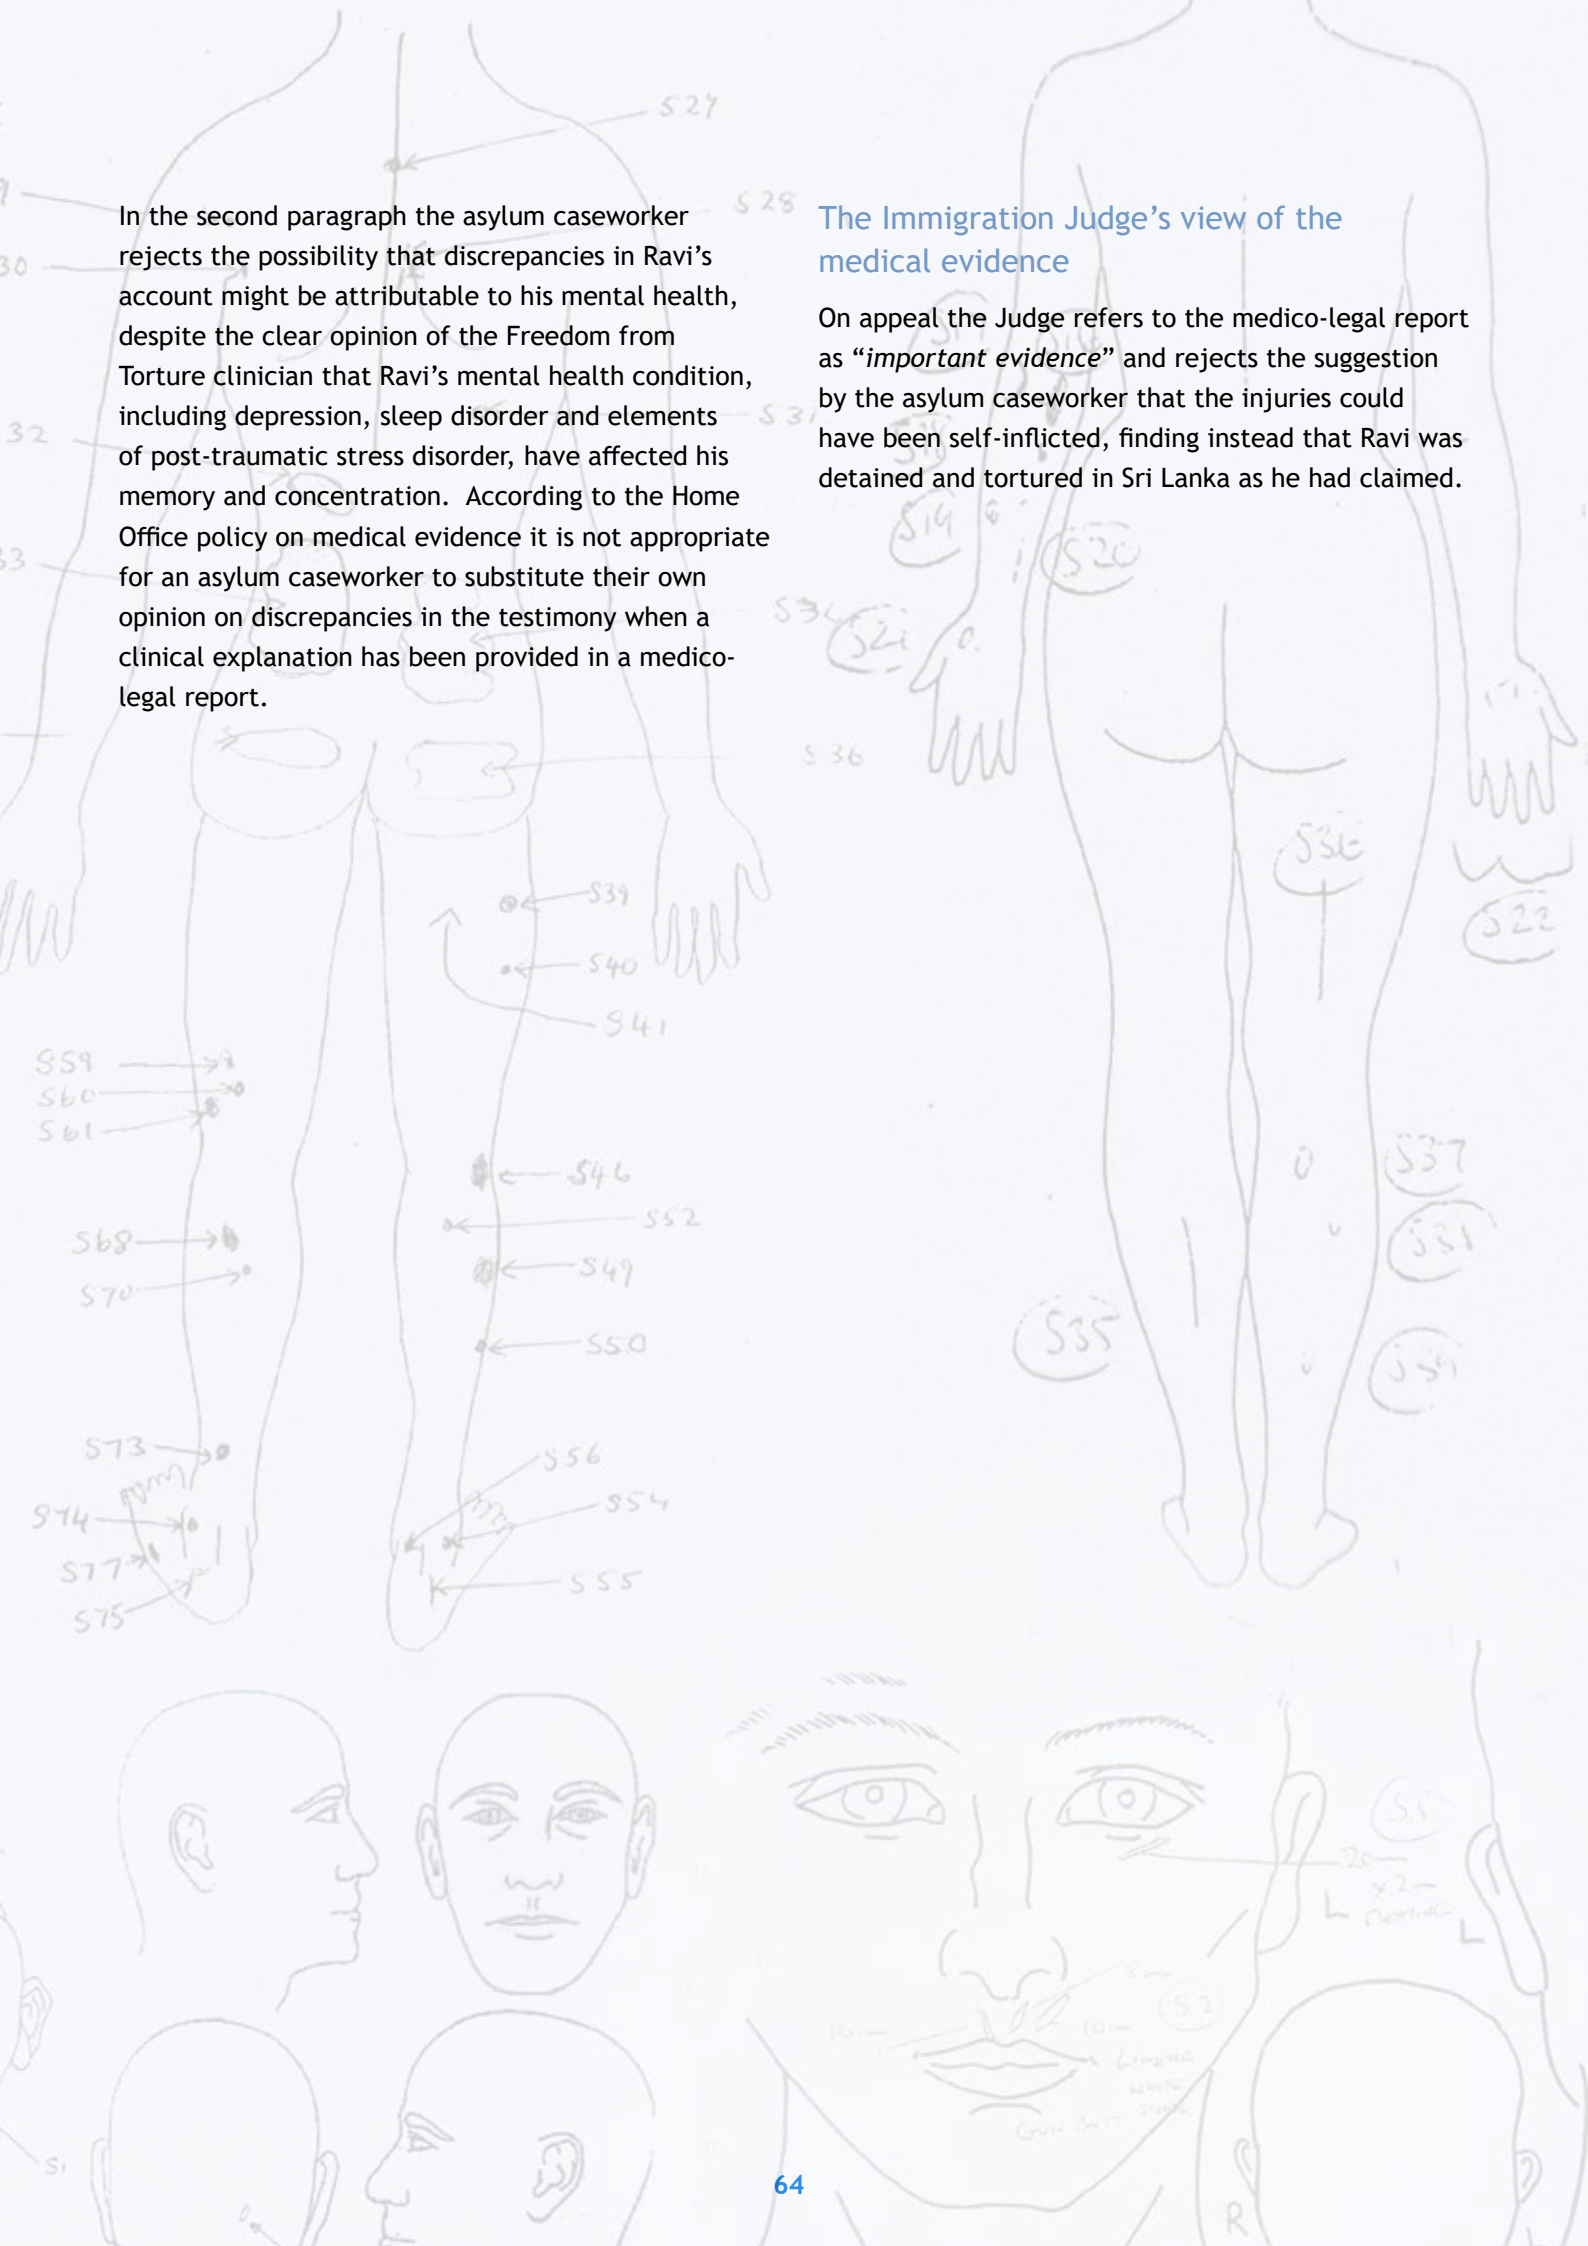 In the second paragraph the asylum caseworker
rejects the possibility that discrepancies in Ravi’s
account might be attributable to his mental health,
despite the clear opinion of the Freedom from
Torture clinician that Ravi’s mental health condition,
including depression, sleep disorder and elements
of post-traumatic stress disorder, have affected his
memory and concentration.  According to the Home
Office policy on medical evidence it is not appropriate
for an asylum caseworker to substitute their own
opinion on discrepancies in the testimony when a
clinical explanation has been provided in a medico-
legal report.
The Immigration Judge’s view of the
medical evidence
On appeal the Judge refers to the medico-legal report
as “important evidence” and rejects the suggestion
by the asylum caseworker that the injuries could
have been self-inflicted, finding instead that Ravi was
detained and tortured in Sri Lanka as he had claimed.
S27
S28
30
32
33
S36
S39
S40
S41
S59
S60
S61
S46
S52
S68
S49
S70
S50
S73
S56
S74
S54
S77
S55
S75
S19
S20
S21
S22
S37
S35
L
L
S2
10
10
S1
R
64